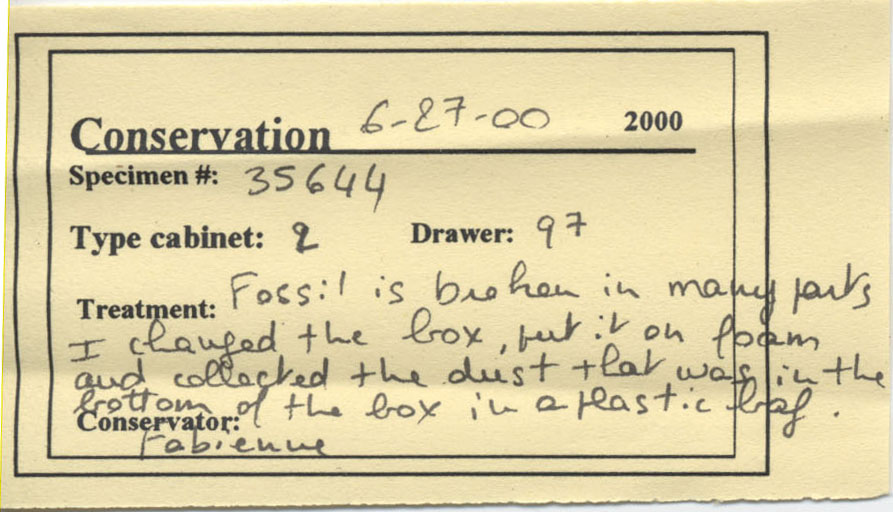 Conservation 6-27-00 2000
Specimen #: 35644
Type cabinet: 2 Drawer: 97
Treatment: Fossil is broken in many parts
I changed the box, put it on foam
and collected the dust that was in the
bottom of the box in a plastic bag.
Conservator:
Fabienne